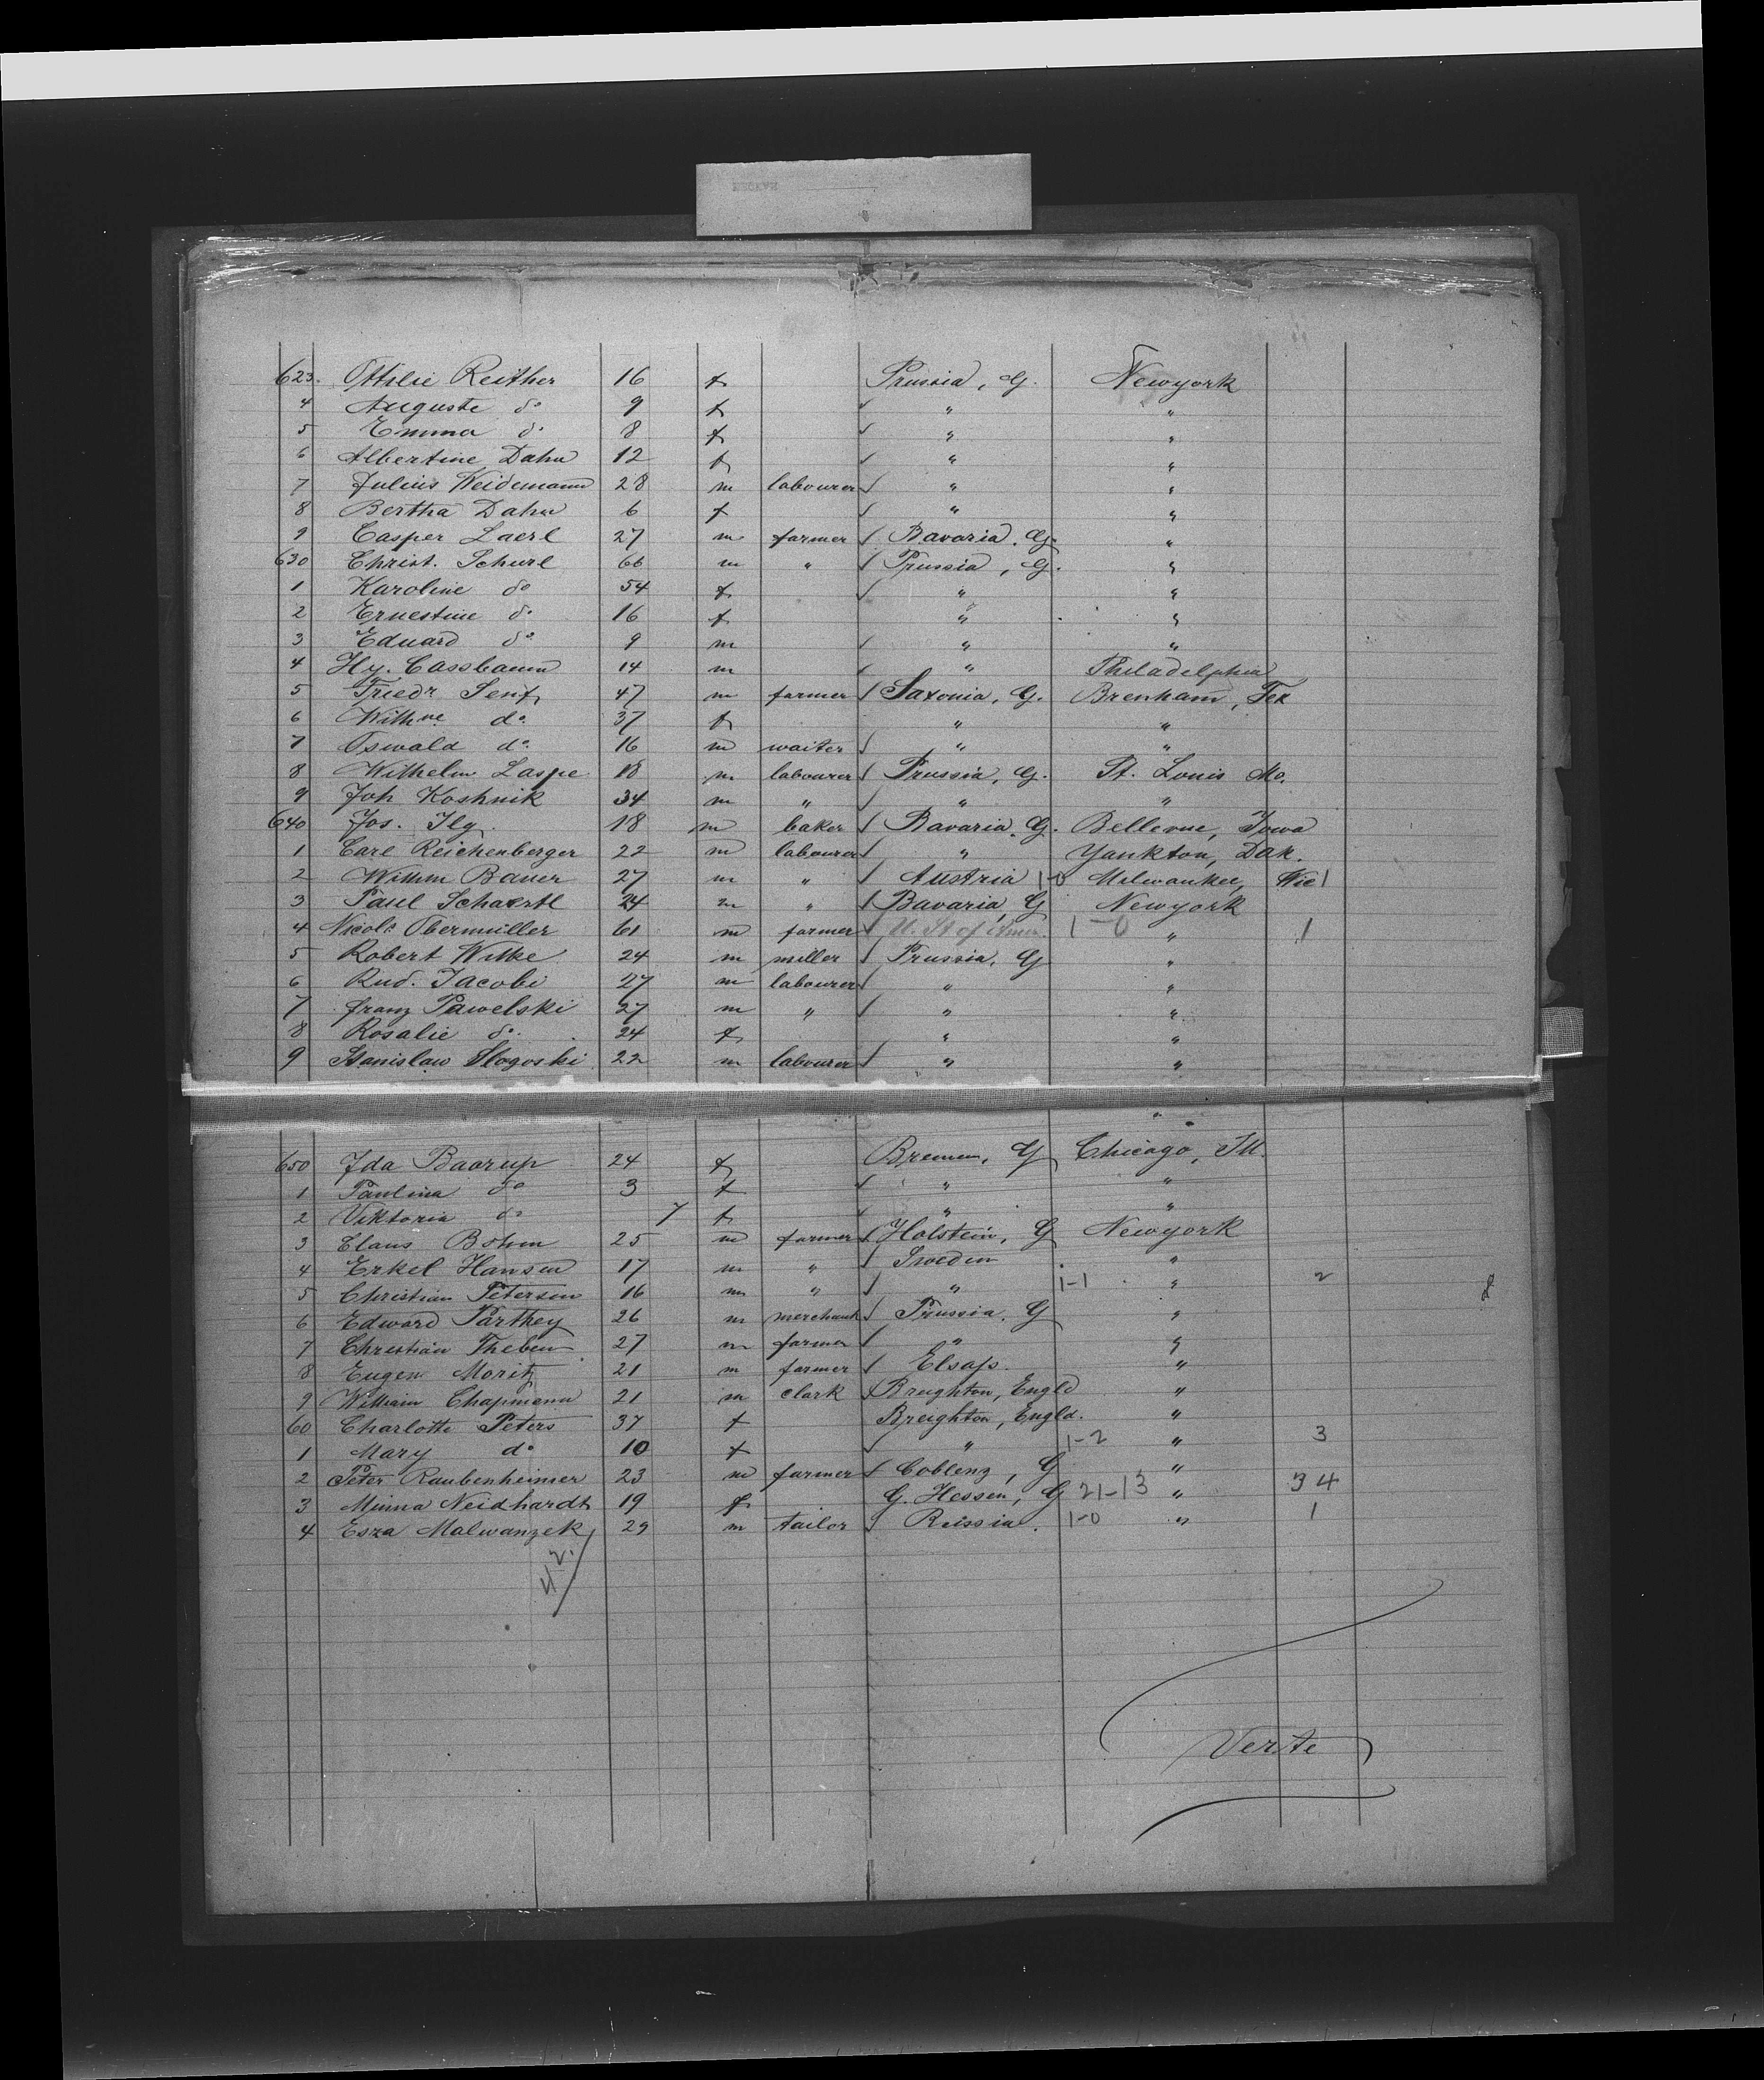 623. Ottilie Reither 16 f Prussia, G. Newyork
4 Auguste do 9 f ✓ " "
5 Emma do 8 f ✓ " "
6 Albertine Dahn 12 f ✓ " "
7 Julius Weidemann 28 m labourer ✓ " "
8 Bertha Dahn 6 f ✓ " "
9 Casper Laerl 27 m farmer ✓ Bavaria. G. "
630 Christ. Schurl 66 m " ✓ Prussia, G. "
1 Karoline do 54 f ✓ " "
2 Ernestine do 16 f " "
3 Eduard do 9 m ✓ " "
4 Hy. Cassbaum 14 m ✓ " Philadelphia
5 Friedr Senf 47 m farmer ✓ Saxonia, G. Brenham, Tex
6 Wilhne do 37 f " "
7 Oswald do 16 m waiter ✓ " "
8 Wilhelm Laspe 18 m labourer ✓ Prussia, G. St. Louis Mo.
9 Joh Koshnik 34 m " ✓ " "
640 Jos. Ilg. 18 m baker ✓ Bavaria. G. Bellevue, Iowa
1 Carl Reichenberger 22 m labourer ✓ " Yankton, Dak.
2 Wilhm Bauer 27 m " ✓ Austria 1-0 Milwaukee, Wic 1
3 Paul Schaertl 24 m " ✓ Bavaria, G Newyork
4 Nicols Obermüller 61 m farmer ✓ U. St of Amer. 1-0 " 1
5 Robert Witke 24 m miller ✓ Prussia, G "
6 Rud. Jacobi 27 m labourer ✓ " "
7 franz Pawelski 27 m " ✓ " "
8 Rosalie do. 24 f " "
9 Stanislaw Slogoski 22 m labourer ✓ " "
650 Ida Baarup 24 f Bremen, G Chicago, Ill.
1 Paulina do 3 f ✓ " "
2 Viktoria do 7 f ✓ " "
3 Claus Bohm 25 m farmer ✓ Holstein, G Newyork
4 Erkel Hansen 17 m " ✓ Sweden "
5 Christian Petersen 16 m " ✓ " 1-1 " 2
6 Edward Parthey 26 m merchant ✓ Prussia. G "
7 Christian Theben 27 m farmer ✓ " "
8 Eugen Moritz 21 m farmer ✓ Elsaſs. "
9 William Chapmann 21 m clark ✓ Breighton, Engld "
60 Charlotte Peters 37 f Breighton, Engld. "
1 Mary do 10 f ✓ " 1-2 " 3
2 Peter Raubenheimer 23 m farmer ✓ Coblenz, G "
3 Minna Neidhardt 19 f G. Hessen, G 21-13 " 34
4 Esra Malwanzek 29 m tailor ✓ Reissia. 1-0 " 1
42.